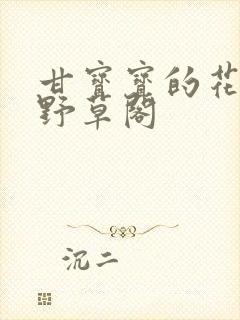 甘寶寶的花
野草閣
沉二